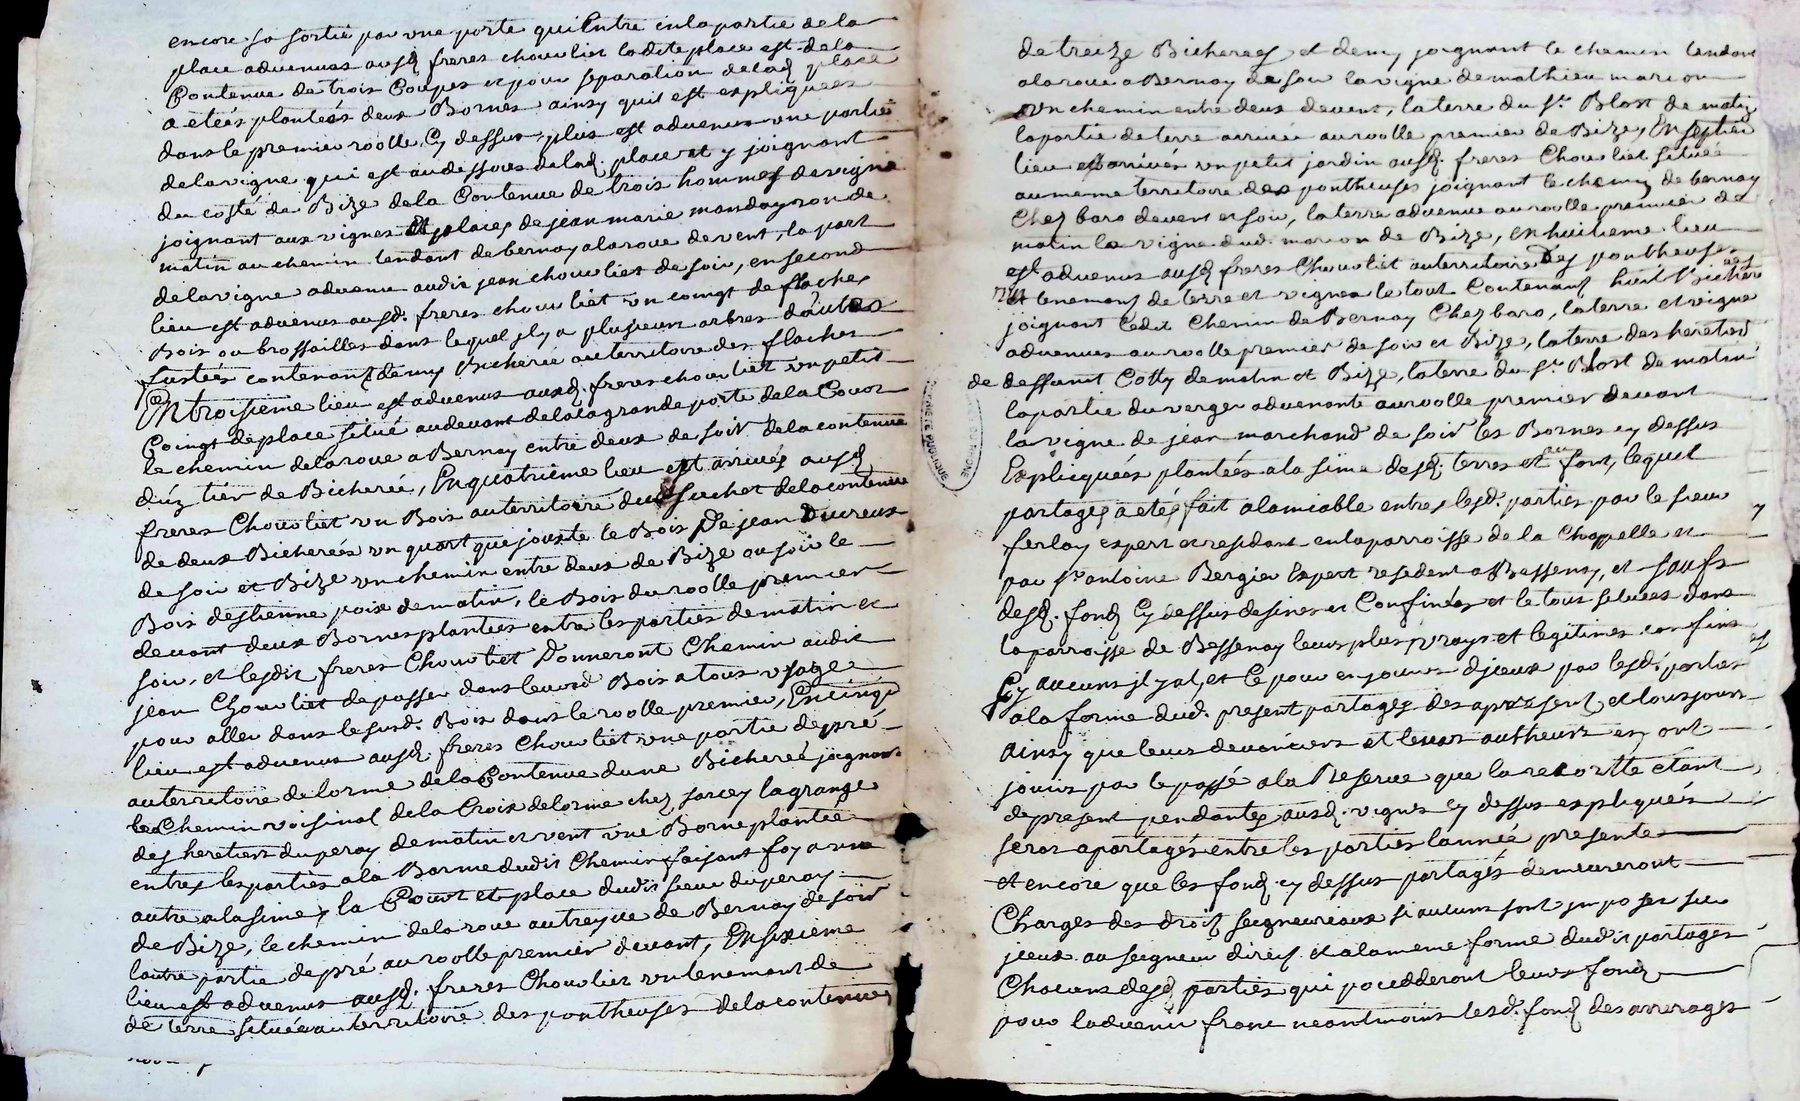 encore sa sortie par une porte qui Entre en la partie de la
place advenues ausd freres chouvliet ladite place est de la
Contenue de trois Coupes et pour separation de lad place
a eteés plantés deux Bornes ainsy quil est expliquees
dans le premier roolle Cy dessus, plus est advenus une partie
de la vigne qui est au dessous de lad. place et y joignant
du costé de Bize de la Contenue de trois hommes de vigne
joignant aux vignes et places de jean marie mandayron de
matin au chemin tendant de bernay a la roue de vent, la part
de la vigne advenu audit jean chouvliet de soir, en second
lieu est advenus ausd. freres chouvliet un coingt de flaches
Bois ou brossailles dans lequel il y a plusieurs arbres dautres
fustées contenant demy Bicherée au territoire des flaches
En troisieme lieu est advenus ausd. freres chouvliet un petit
Coingt de place situé au devant de la grande porte de la Cour
le chemin de la roue a Bernay entre deux de soir de la contenue
d'uz tier de Bicherée, En quatrieme lieu est arrivés ausd
freres Chouvliet un Bois au territoire du suchet de la contenue
de deux Bicherées un quart que jouxte le Bois De jean Ducreux
de soir et Bize un chemin entre deux de Bize ou soir le
Bois destienne poix de matin, le Bois du roolle premier
devant deux Bornes plantées entre les parties de matin et
soir, et lesdit freres Chouvliet Donneront Chemin audit
jean Chouvliet de passer dans leurd Bois a tous usage
pour aller dans le susd. Bois dans le roolle premier, En cinqe
lieu est advenus ausd. freres Chouvliet une partie de pré
au territoire de lorme de la Contenue dune Bicherée joignant
le Chemin voisinal de la Croix de lorme chez sarcey la grange
des heretiers du peray de matin et vent une Borne plantée
entre les parties a la Borme dudit Chemin faisant foy a une
autre a la sime, la Cour et place dudit sieur du peray
de Bize, le chemin de la roue autreyue de Bernay de soir
lautre partie de pré au roolle premier devant, En sixieme
lieu est advenus ausd. freres Chouvliet un tenement de
de terre situé au territoire des pontheuses de la contenue
de treize Bicherees et demy joignant le chemin tendant
a la roue a Bernay de soir la vigne de mathieu marion
un chemin entre deux de vent, la terre du Sr Blost de matin
la partie de terre arrivée au roolle premier de Bize, En septieu
lieu est arrivés un petit jardin ausd. freres Chouvliet situeé
au meme territoire des pontheuses joignant le chemin de bernay
Chez baro de vent et soir, la terre advenue au roolle premier de
matin la vigne dud. marion de Bize, en huitieme lieu
est advenus ausd freres Chouvliet au territoire Des pontheuses
un tenement de terre et vignes le tout Contenant huit Bicherées
joignant Ledit Chemin de Bernay Chez baro, la terre et vigne
advenues au roolle premier de soir et Bize, la terre des heretier
de deffunt Cotty de matin et Bize, la terre du Sr Blost de matin
la partie du verger advenante au roolle premier devant
la vigne de jean marchand de soir les Bornes cy dessus
Expliqueés plantées a la sime desd. terres et au font, lequel
partages a etés fait alamiable entre lesd. parties par le sieur
ferlay expert et residant en la parroisse de la Chappelle et
par Sr antoine Bergier Expert resident a Bessenay, et saufs
desd. fond Cy dessus desines et Confinées et le tous situées dans
la parroisse de Bessenay leurs plus vrays et legitimes confins
sy aucuns il y at, et Ce pour en jouir dijeux par lesd. parties
a la forme dud. present partages des apresent et tousjours
ainsy que leurs devanciers et leurs autheurs en ont
jouis par le passé a la Reserve que la recortte étant
de present pendantes ausd. vignes cy dessus expliqués
seras apartagés entre les parties lannée presente
et encore que les fond cy dessus partagés demeureront
Charges des droit seigneuriaux si aucuns sont imposes sur
jceux au seigneur direct et a la meme forme dudit partages
Chacuns desd parties qui possedderont leurs fond
pour ladvenir franc neantmoins lesd. fond des arrerages